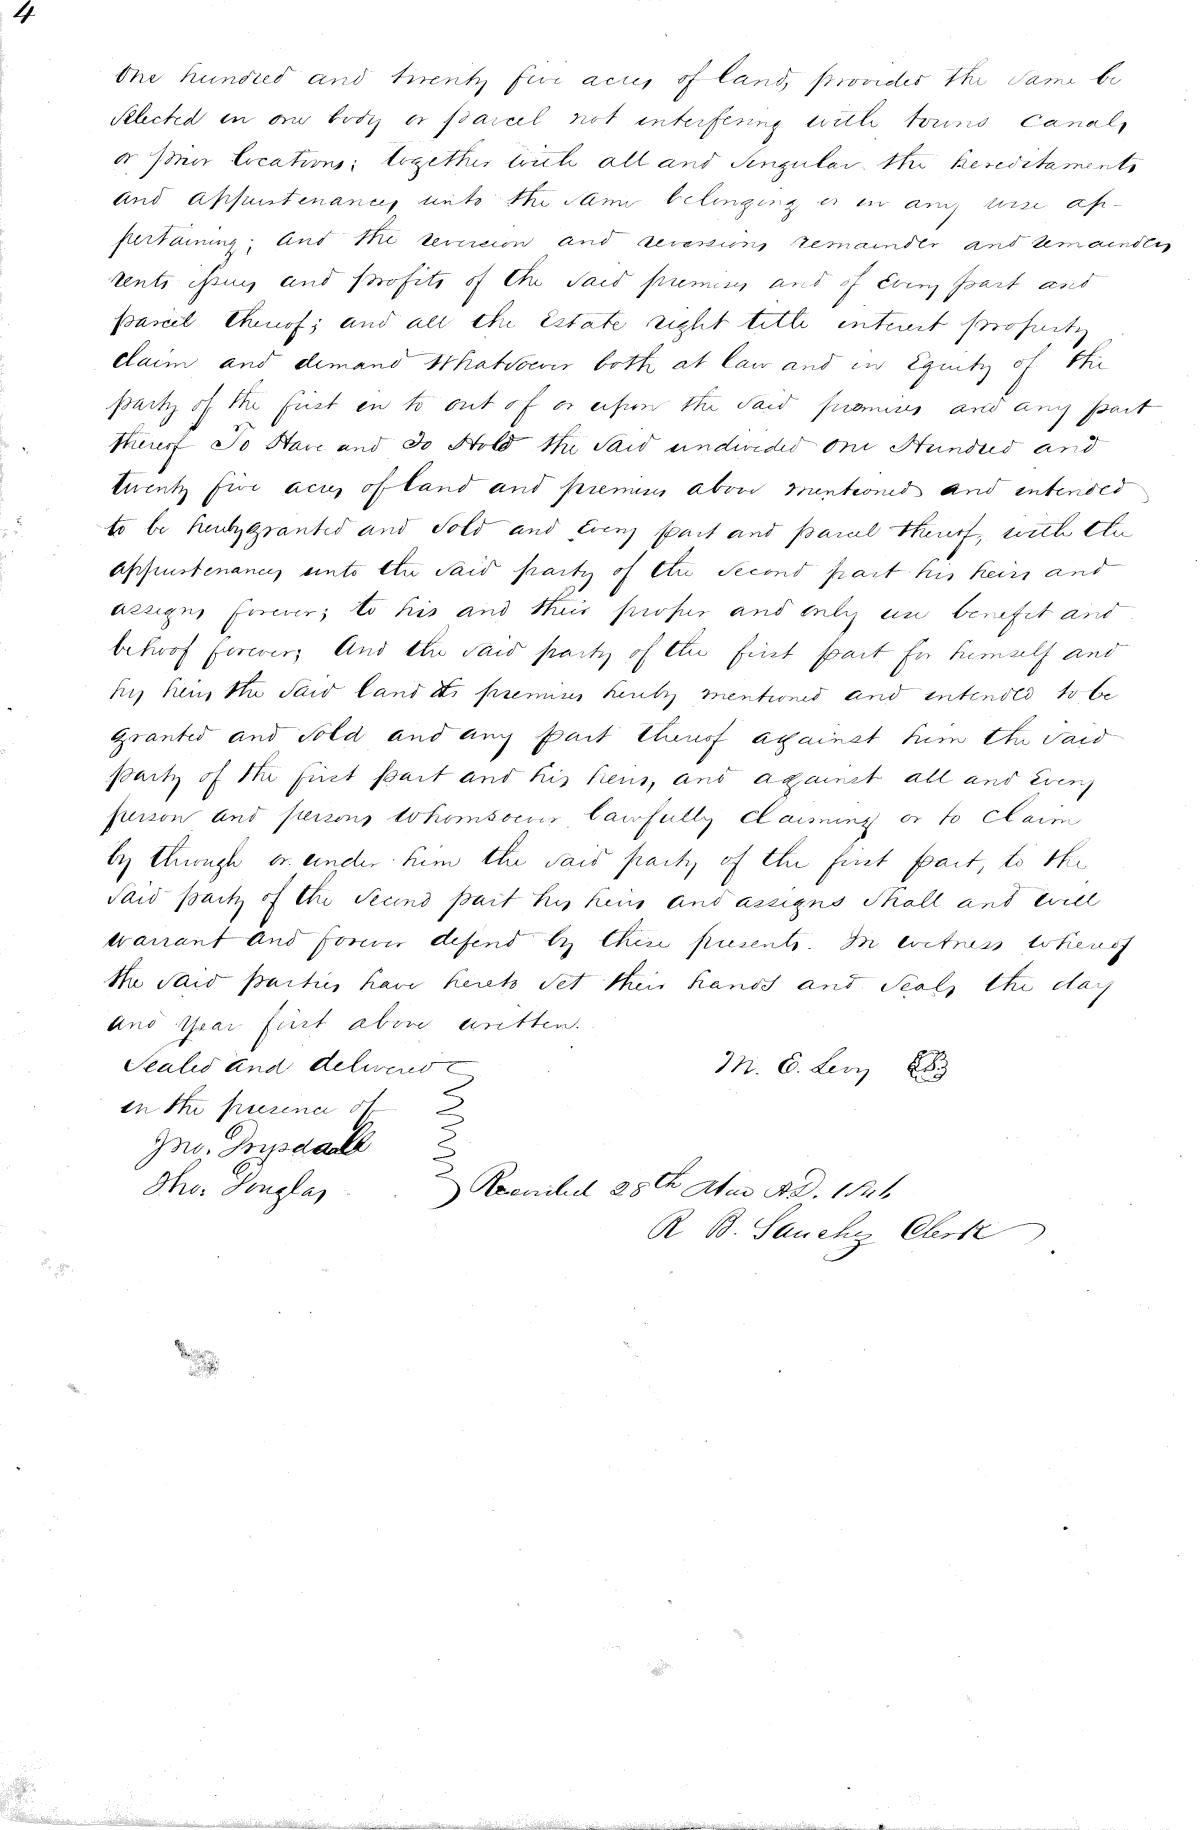 4
One hundred and twenty five acres of land, provided the same be
selected in one body or parcel not interfering with towns Canals
or prior locations; together with all and singular the hereditaments
and appurtenances unto the same belonging or in any wise ap-
pertaining; and the reversion and reversions remainder and remainders
rents issues and profits of the said premises and of Every part and
parcel thereof; and all the Estate right title interest property
claim and demand Whatsoever both at law and in Equity of the
party of the first in to out of or upon the said premises and any part
thereof To Have and To Hold the said undivided One Hundred and
twenty five acres of land and premises above mentioned and intended
to be hereby granted and Sold and Every part and parcel thereof, with the
appurtenances unto the said party of the second part his heirs and
assigns forever; to his and their proper and only use benefit and
behoof forever; And the said party of the first part for himself and
his heirs the said land & premises hereby mentioned and intended to be
granted and sold and any part thereof against him the said
party of the first part and his heirs, and against all and Every
person and persons whomsoever lawfully claiming or to claim
by through or under him the said party of the first part, to the
said party of the second part his heirs and assigns Shall and will
warrant and forever defend by these presents. In witness whereof
the said parties have hereto set their hands and Seals the day
and Year first above written.
Sealed and delivered M. E. Levy
in the presence of
Jno. Drysdale
Tho: Douglas Recorded 28th A.D.
R B. Sanchez Clerk